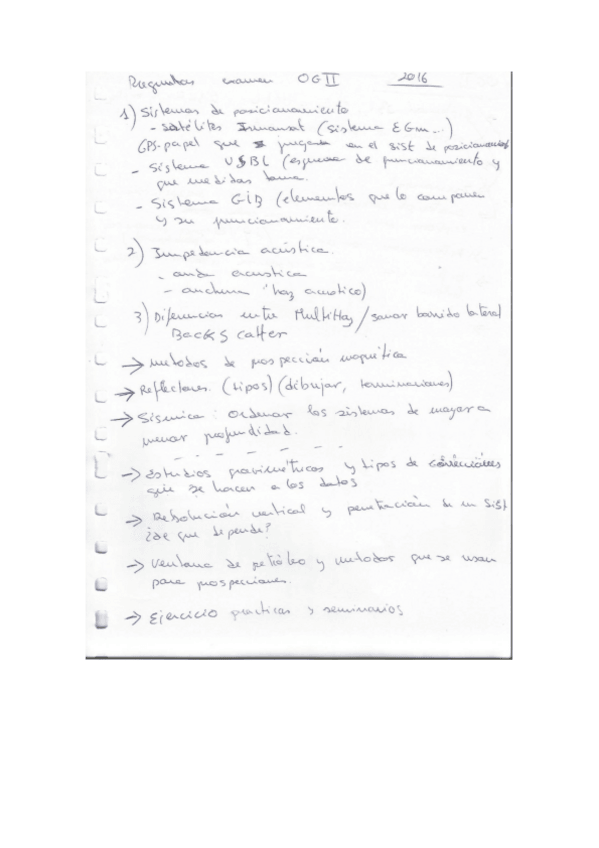 Preguntas examen OGII 2016
1) Sistemas de posicionamiento
- satélites Inmarsat (sistema EGm...)
GPS-papel que juega en el sist de posicionamiento
- Sistema USBL (esquema de funcionamiento y
que medidas toma.
- Sistema GIB (elementos que lo componen
y su funcionamiento.
2) Impedancia acústica.
- onda acustica
- anchura "haz acustico)
3) Diferencias entre MultiHaz/sonar barrido lateral
BackScatter
→ metodos de prospección magnética
→ Reflectores. (tipos) (dibujar, terminaciones)
→ Sísmica: Ordenar los sistemas de mayor a
menor profundidad.
- - - - - -
→ Estudios gravimétricos y tipos de correcciones
que se hacen a los datos
→ Resolución vertical y penetración de un Sist
¿de que depende?
→ Ventana de petróleo y metodos que se usan
para prospecciones.
→ Ejercicio practicas y seminarios